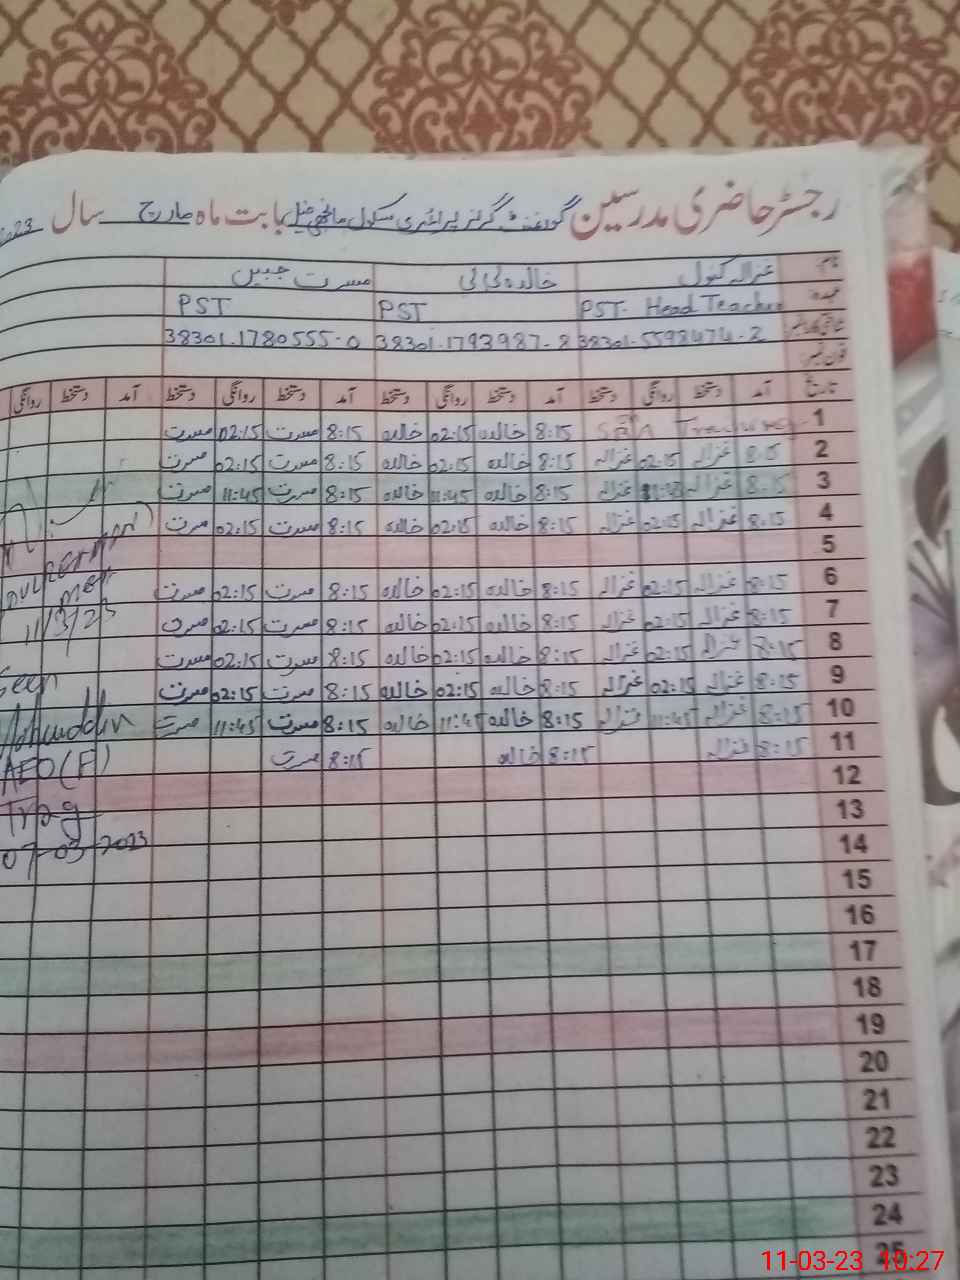 رجسٹر حاضری مدرسین گورنمنٹ گرلز پرائمری سکول بابت ماہ مارچ سال 2023
نام غزالہ کنول خالدہ بی بی مسرت جبیں
عہدہ PST. Head Teacher PST PST
شناختی کارڈ نمبر 38301-5598474-2 38301-1793987-8 38301-1780555-0
فون نمبر
تاریخ آمد دستخط روانگی دستخط آمد دستخط روانگی دستخط آمد دستخط روانگی دستخط آمد دستخط روانگی
1 8:15 خالدہ 02:15 خالدہ 8:15 مسرت 02:15 مسرت
2 8:15 غزالہ 02:15 غزالہ 8:15 خالدہ 02:15 خالدہ 8:15 مسرت 02:15 مسرت
3 8:15 غزالہ غزالہ 8:15 خالدہ 11:45 خالدہ 8:15 مسرت 11:45 مسرت
4 8:15 غزالہ 02:15 غزالہ 8:15 خالدہ 02:15 خالدہ 8:15 مسرت 02:15 مسرت
5
6 8:15 غزالہ 02:15 غزالہ 8:15 خالدہ 02:15 خالدہ 8:15 مسرت 02:15 مسرت
7 8:15 غزالہ 02:15 غزالہ 8:15 خالدہ 02:15 خالدہ 8:15 مسرت 02:15 مسرت
8 8:15 غزالہ 02:15 غزالہ 8:15 خالدہ 02:15 خالدہ 8:15 مسرت 02:15 مسرت
9 8:15 غزالہ 02:15 غزالہ 8:15 خالدہ 02:15 خالدہ 8:15 مسرت 02:15 مسرت
10 8:15 غزالہ 11:45 غزالہ 8:15 خالدہ 11:45 خالدہ 8:15 مسرت 11:45 مسرت
11 8:15 غزالہ 8:15 خالدہ 8:15 مسرت
12
13
14
15
16
17
18
19
20
21
22
23
24
25
11/3/23
Seen
AEO(F)
07-03-2023
11-03-23 10:27